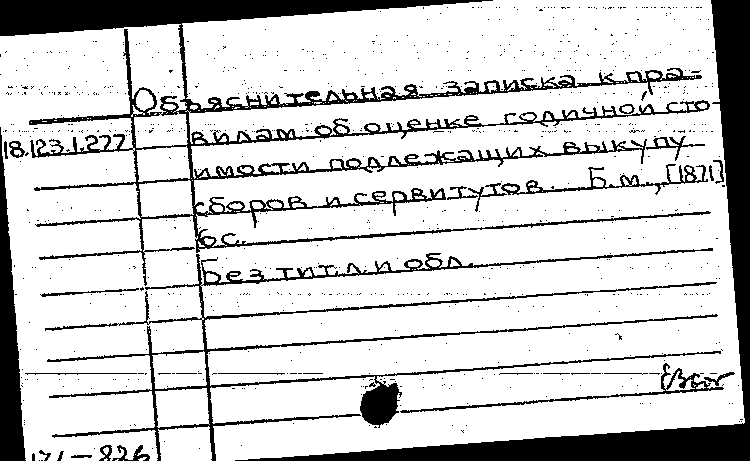 Объяснительная записка к пра-
18.123.1.277 вилам об оценке годичной сто-
имости подлежащих выкупу
сборов и сервитутов. Б.м., [1871]
6с.
Без тит.л. и обл.
171-826